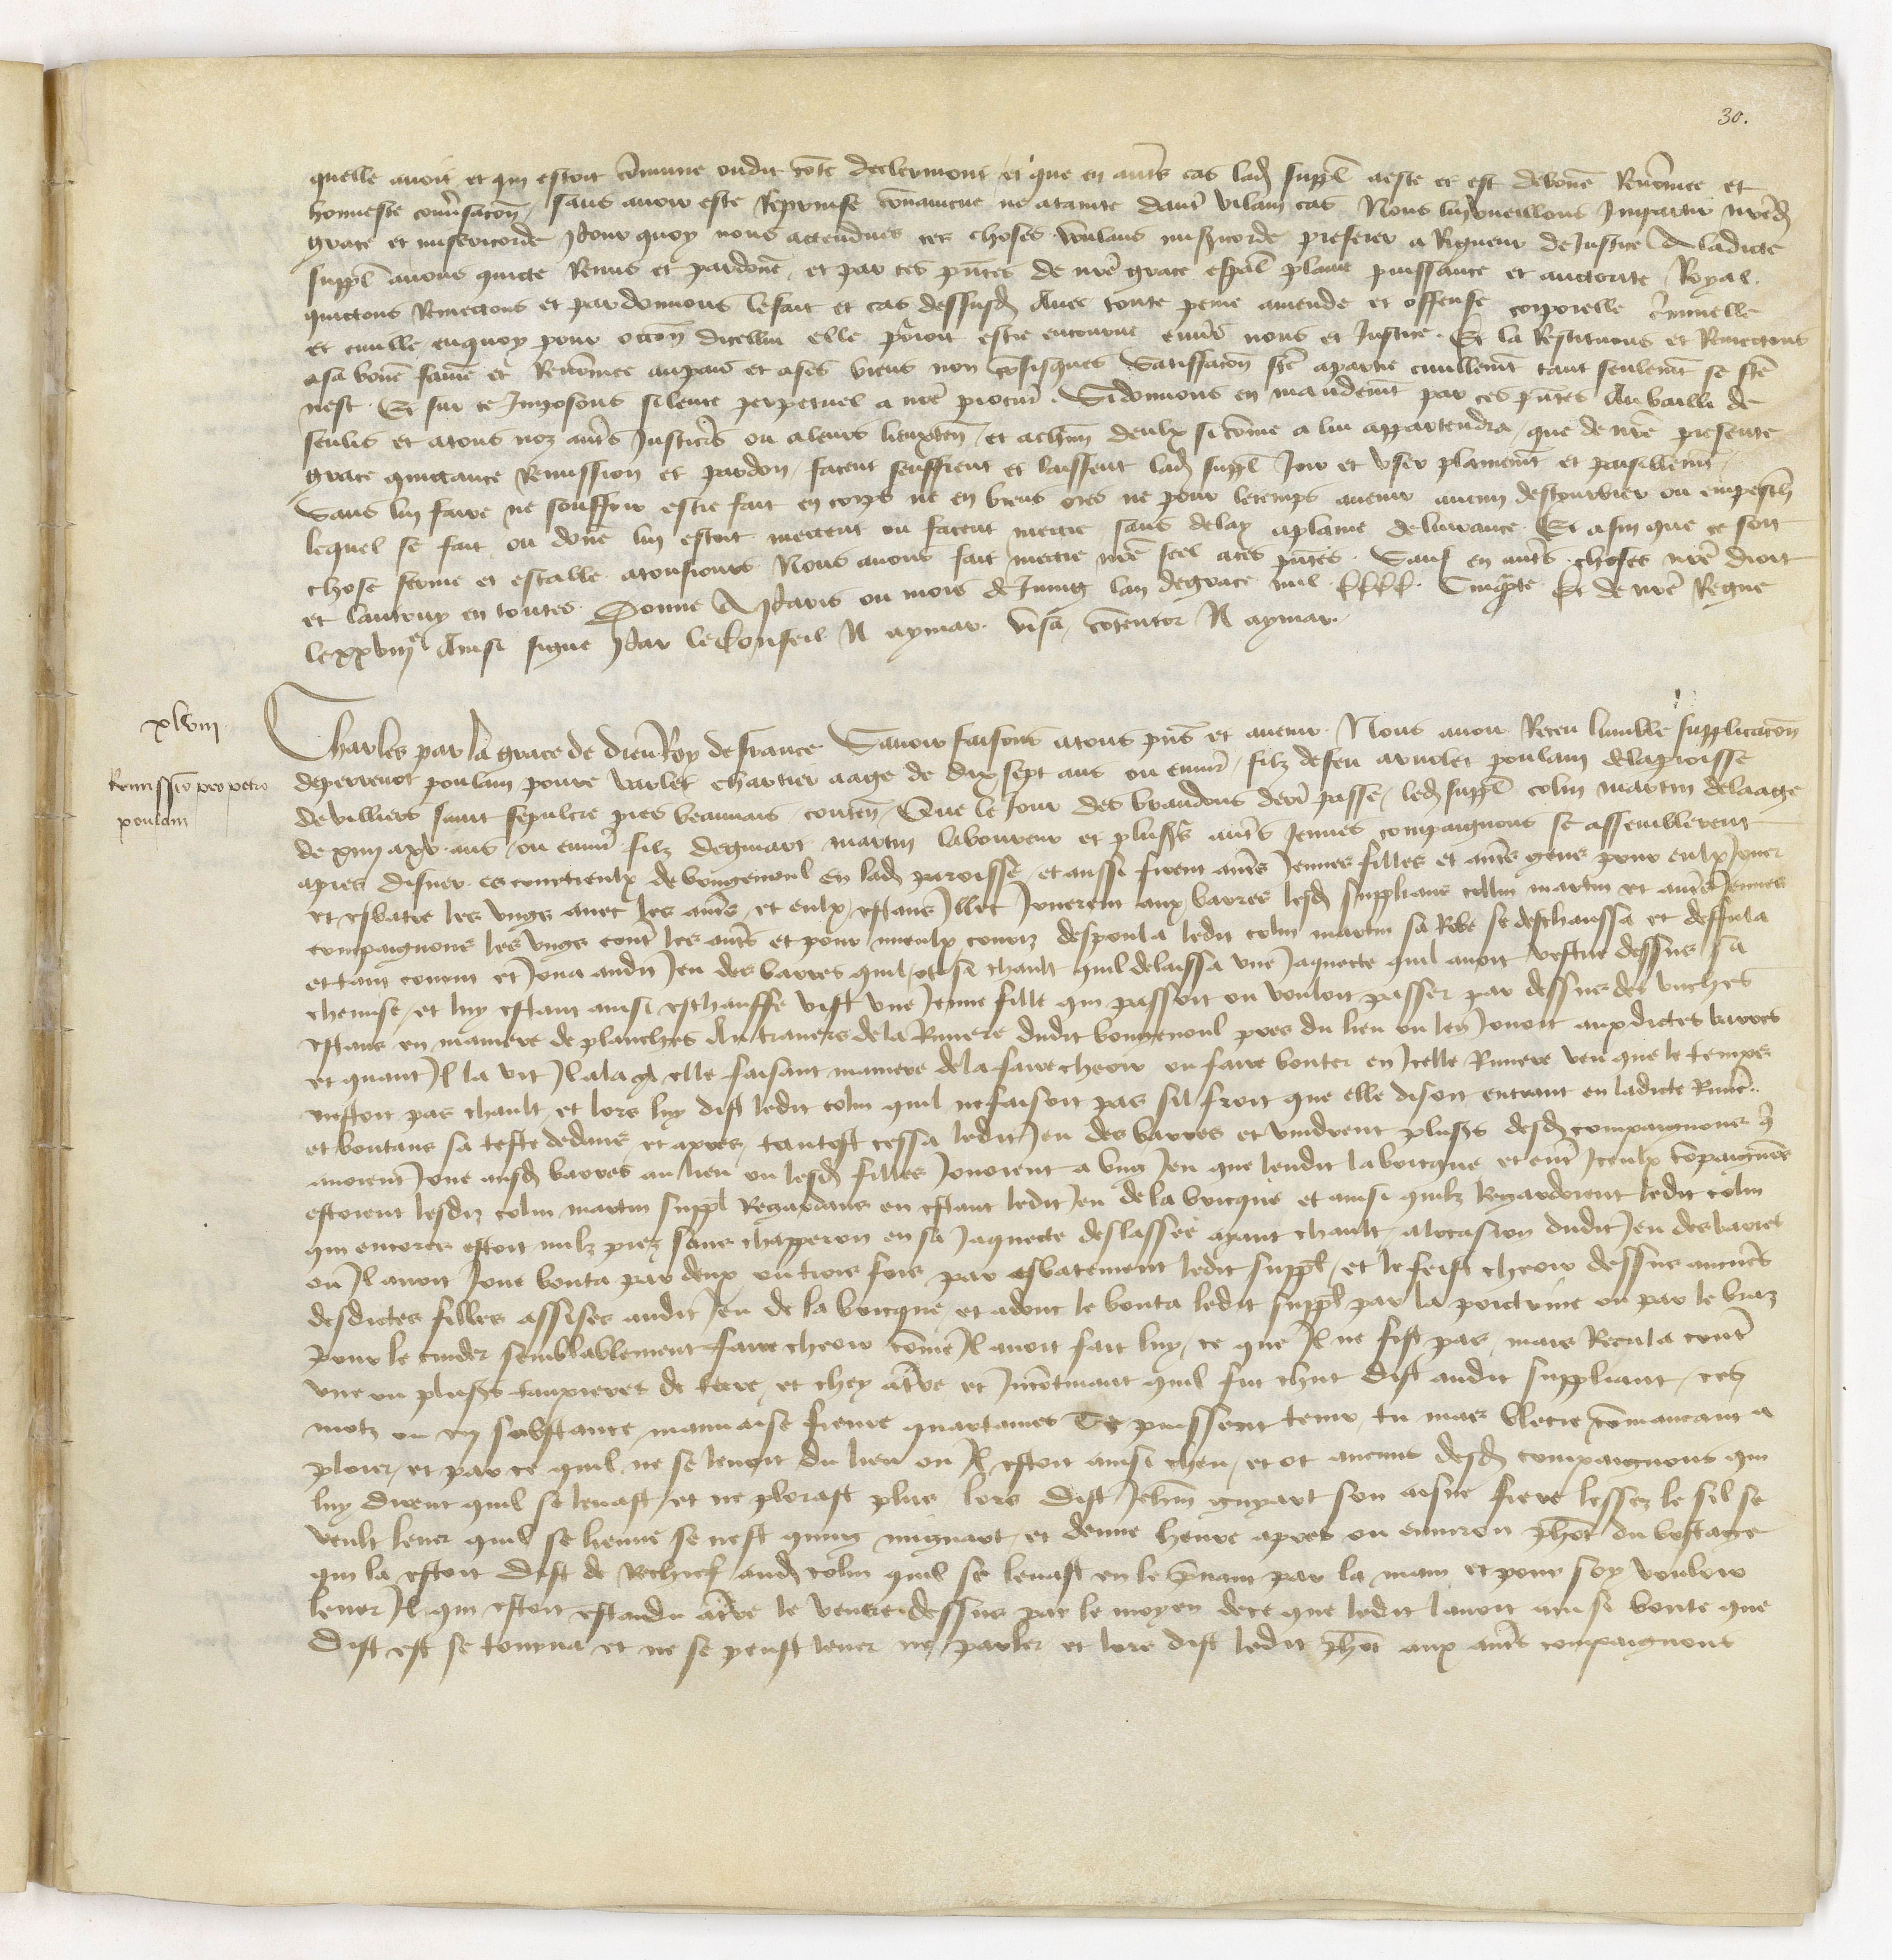 30.
quelle avoit et qui estoit cõmune oudit cõte de clermont / et que en autẽs cas lad suppl a este et est de bonẽ Renõmee et
honneste conv̾sacõn / sans avoir este Reprinse convaincue ne atainte dautẽ vilain cas Nous luy vueillons Impartir nrẽd
grace et misericorde Pour quoy nous attendues ces choses voulans misẽicorde preferer a Rigueur de Justice A ladicte
suppl avons quicte Remis et pardonẽ et par ces pñtes de nrẽ grace espãl plaine puissance et auctorite Royal
quictons Remectons et pardonnons le fait et cas dessusd Avec toute peine amende et offense corporelle c̾minelle
et civille en quoy pour occõn dicellui elle porroit estre encourue envẽs nous et Justice . Et la Restituons et Remectons
a sa bonẽ fame et Renõmee au pais et a ses biens non cõfisques Satisfacõn ftẽ a partie civillemẽt tant seulemẽt se ftẽ
nest . Et sur ce Imposons silence perpetuel a nrẽ procurẽ . Si donnons en mandemẽt par ces pñtes Au bailli de
senlis et a tous noz autẽs Justiciẽs ou a leurs lieuxteñ et a chũn deulx si cõme a lui appartendra / que de nrẽ presente
grace quictance Remission et pardon / facent seuffrent et laissent lad suppl Joir et user plainemẽt et paisiblemẽt
Sans luy faire ne souffrir estre fait en corps ne en biens ores ne pour le temps avenir aucun destourbier ou empesch
lequel se fait ou donẽ luy estoit mectent ou facent mectre sans delay a plaine delivrance Et afin que ce soit
chose ferme et estable a tousjours Nous avons fait mectre nrẽ seel a ces pñtes . Sauf en autẽs choses nrẽ droit
et lautruy en toutes . Donne A Paris ou mois de Juing lan de grace mil CCCC . Cinqũte Et de nrẽ Regne
le xxviij e Ainsi signe Par le Conseil N aymar . visa contentor N aymar .
xlviij
Remissio pro petro
poulain
Charles par la grace de dieu Roy de france Savoir faisons a tous pñs et avenir . Nous avoir Receu lumble supplicacõn
de perrenot poulain povre varlet chartier aage de dix sept ans ou envirõ / filz de feu arnolet poulain de la p̾oisse
de villiers saint sepulcre pres beauvais conteñ / Que le Jour des brandons derẽ passe / led suppl colin martin de laage
de xiiij a xv ans ou envirõ filz de martin laboureur et plusẽs autẽs Jeunes compaignons se assemblerent
apres disner es courtieulx de bongenoul en lad paroisse / et aussi firent autẽs Jennes filles et autẽs gens pour eulx Jouer
et esbatre les ungs avec les autẽs / et eulx estans Illec Jouerent aux barres lesd supplians colin martin et autẽs Jennes
compaignons les ungs contẽ les autẽs et pour mieulx courir despoula ledit colin martin sa Robe se deschaussa et deffula
et tant courut et Joua audit Jeu des barres quil ot si chault quil delaissa une Jaquecte quil avoit vestue dessus sa
chemise / et luy estant ainsi eschauffe vist une Jeune fille qui passoit ou vouloit passer par dessus des busches
estans en maniere de planches Au travers de la Riviere dudit bongenoul pres du lieu ou len Jouoit aux dictes barres
et quant Il la vit Il ala a elle faisant maniere de la faire cheoir ou faire bouter en Icelle Riviere veu que le temps
nestoit pas chault / et lors luy dist ledit colin quil ne faisoit pas sil froit que elle disoit entrant en ladicte Rivieẽ
et boutans sa teste dedans / et apres tantost cessa ledit Jeu des barres et vindrent plusẽs desd compaignons q̾
avoient Joue ausd barres au lieu ou lesd filles Jouoient a ung Jeu que len dit la bricque et entẽ Iceulx Compaignõs
estoient lesdiz colin martin suppl Regardans en estant ledit Jeu de la bricque et ainsi quilz Regardoient ledit colin
qui encores estoit nulz piez sans chapperon en sa Jaquecte deslassee ayant chault / a locasion dudit Jeu des barres
ou Il avoit Joue bouta par deux ou trois fois par esbatement ledit suppl / et le feist cheoir dessus aucunẽs
desdictes filles assises audit Jeu de la bricque / et adonc le bouta ledit suppl par la poictrine ou par le bras
pour le cuider semblablement faire cheoir cõme Il avoit fait luy / ce que Il ne fist pas mais Recula contẽ
une ou plusẽs taupieres de terre / et chey a t̾re et Incõtinant quil fut cheut dist audit suppliant / ces
motz ou en substance / mauvaise fievre quartaines Te puissent tenir tu mas blecie cõmancant a
plorer / et par ce quil ne se levoit du lieu ou Il estoit ainsi cheu / et ot aucuns desd compaignons qui
luy dirent quil se levast et ne plorast plus lors dist Jehñ guyart son aisne frere lessez le sil se
veult lever quil se lieuve se nest quung mignart / et demie heure apres ou environ du bestage
qui la estoit dist de Rechief aud colin quil se levast en le p̾nant par la main et pour soy vouloir
lever Il qui estoit estandu a t̾re le ventre dessus par le moyen de ce que ledit lavoit ainsi boute que
dist est se tourna et ne se peust lever ne parler et lors dist ledit aux autẽs compaignons